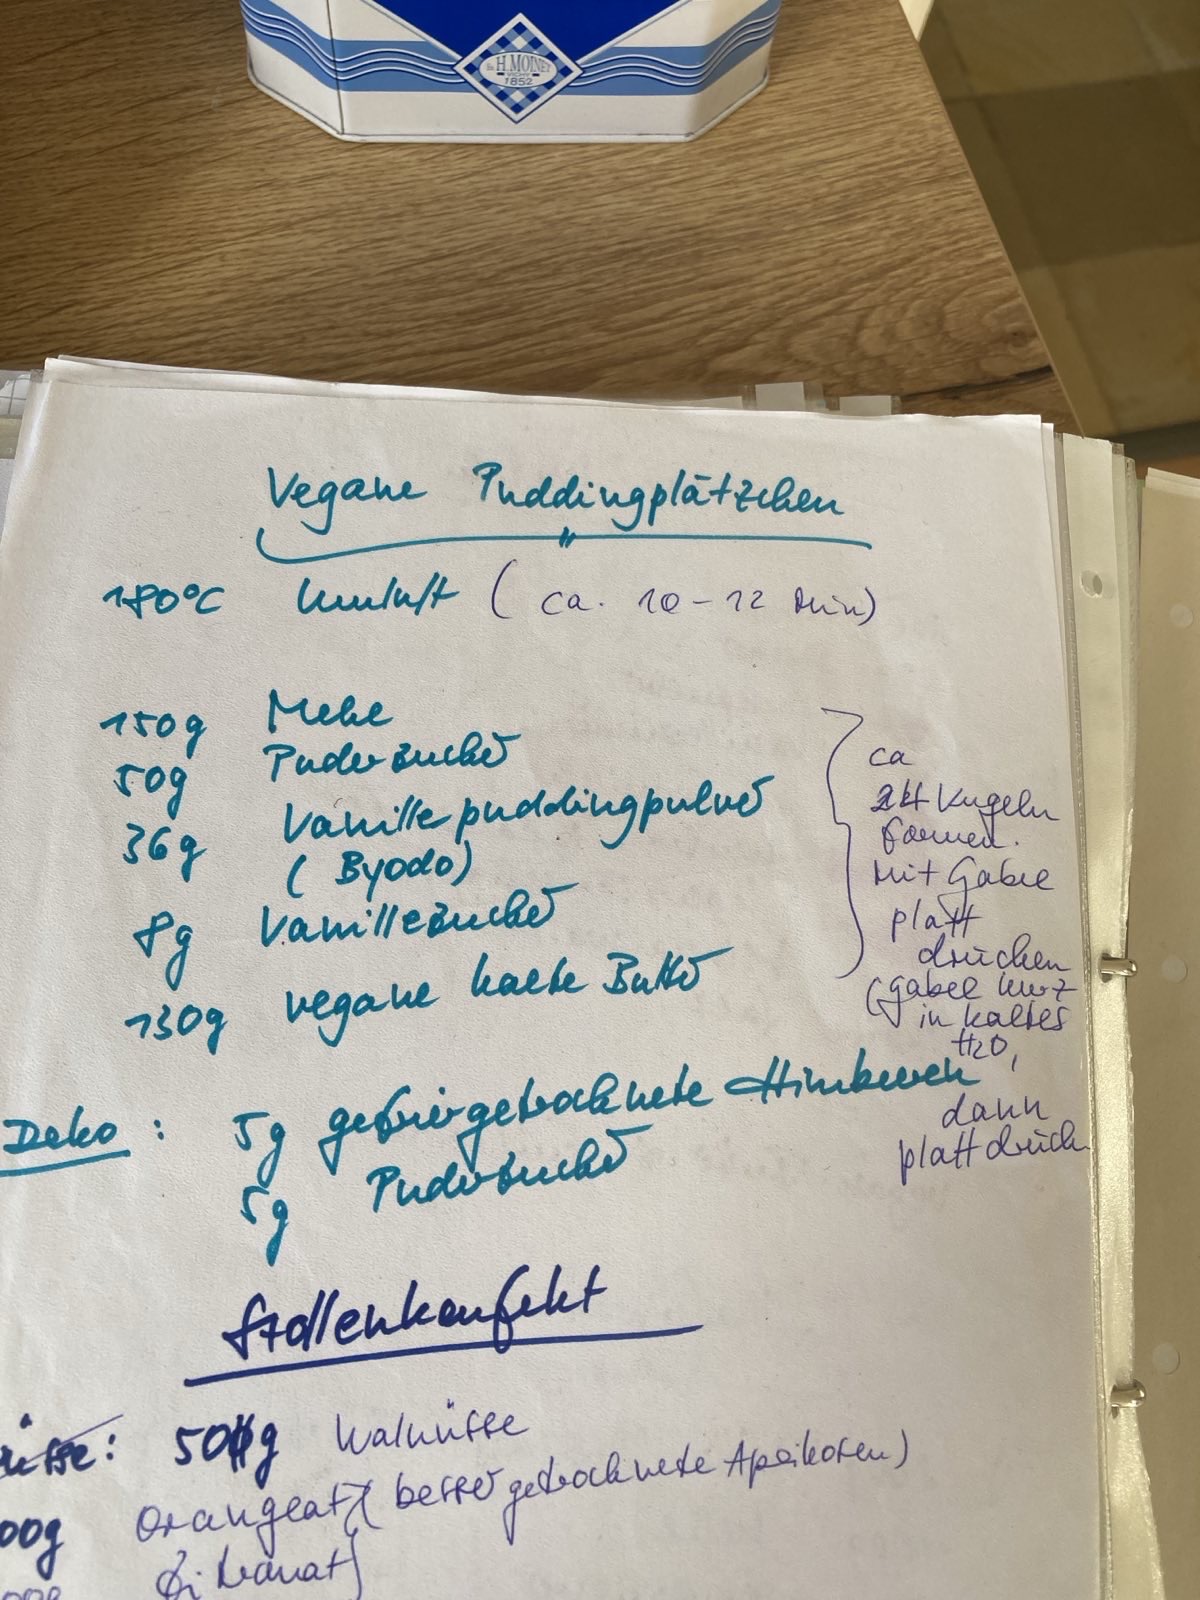 Es H. MOINET
VICHY
1852
Vegane Puddingplätzchen
180°C Umluft (ca. 10-12 Min)
150g Mehl
50g Puderzucker
36g Vanillepuddingpulver
(Byodo)
8g Vanillezucker
130g vegane kalte Butter
ca
24 Kugeln
formen.
Mit Gabel
platt
drücken
(Gabel kurz
in kaltes
H2O,
dann
platt drück
Deko: 5g gefriergetrocknete Himbeeren
5g Puderzucker
Stollenkonfekt
50g Walnüsse
00g Orangeat (besser getrocknete Aprikosen)
Zitronat